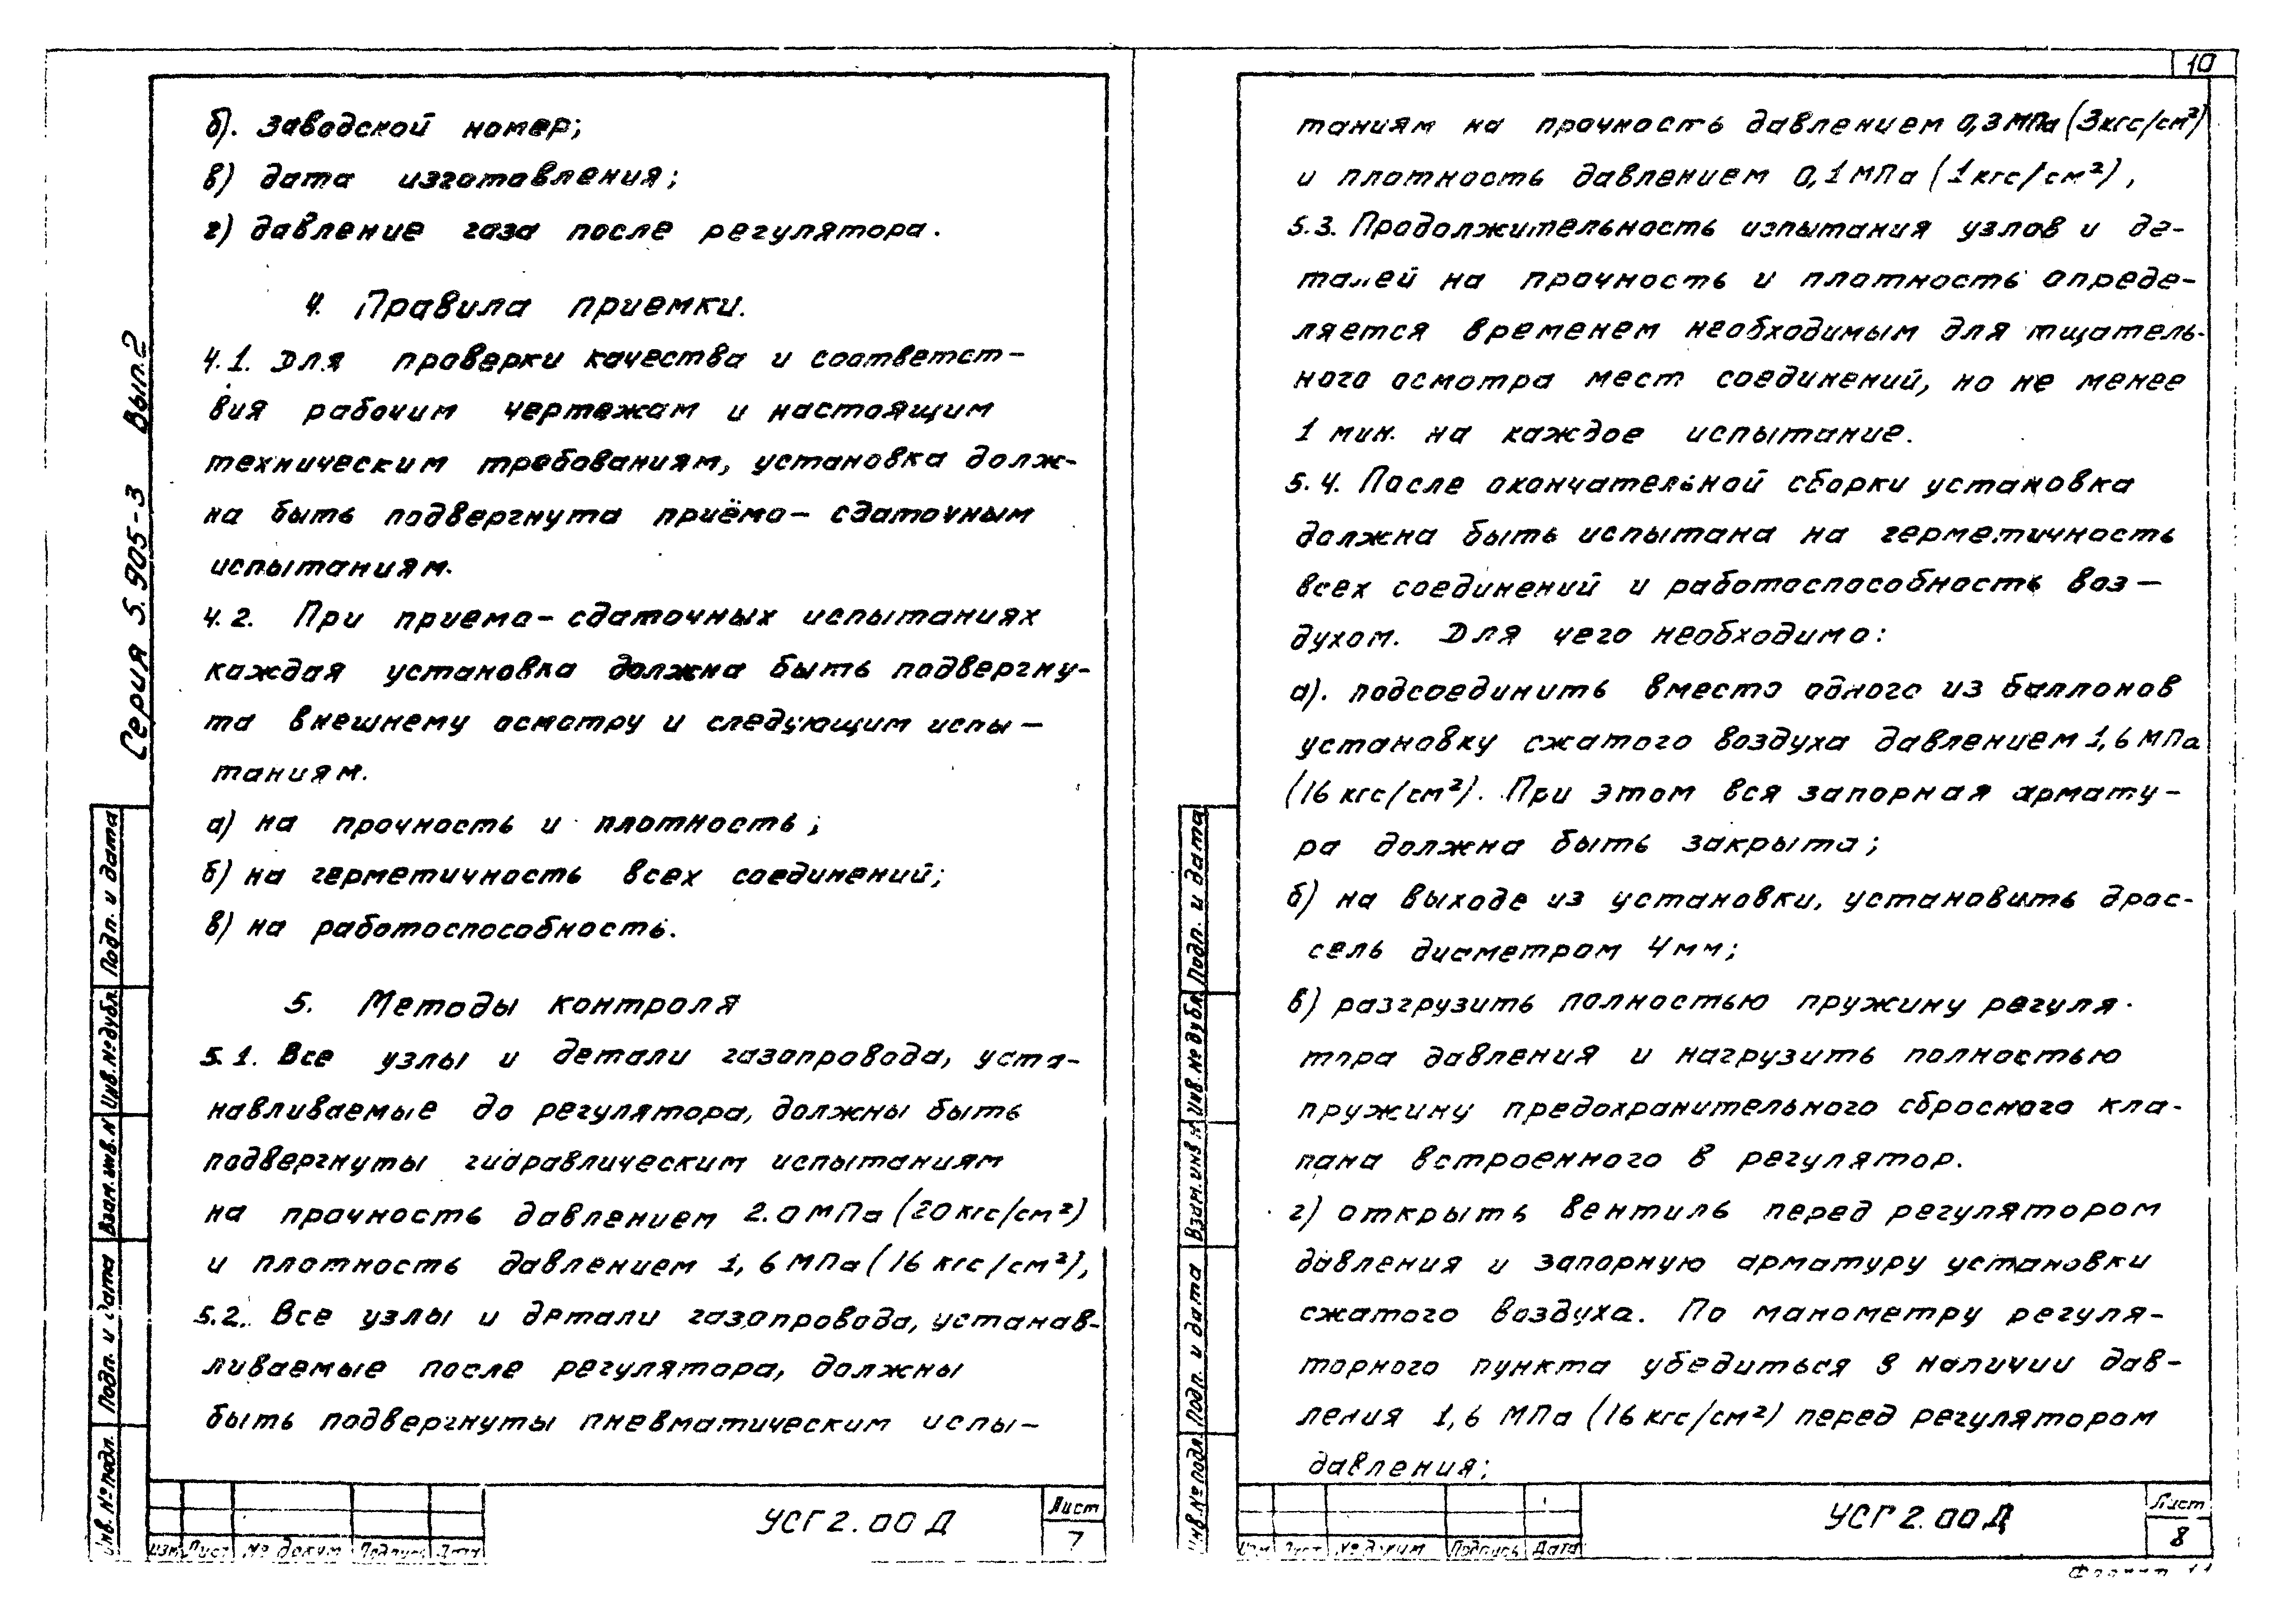 б). заводской номер;
в) дата изготовления;
г) давление газа после регулятора.
4. Правила приемки.
4.1. Для проверки качества и соответст-
вия рабочим чертежам и настоящим
техническим требованиям, установка долж-
на быть подвергнута приёмо-сдаточным
испытаниям.
4.2. При приемо-сдаточных испытаниях
каждая установка должна быть подвергну-
та внешнему осмотру и следующим испы-
таниям.
а) на прочность и плотность;
б) на герметичность всех соединений;
в) на работоспособность.
5. Методы контроля
5.1. Все узлы и детали газопровода, уста-
навливаемые до регулятора, должны быть
подвергнуты гидравлическим испытаниям
на прочность давлением 2.0 МПа (20 кгс/см²)
и плотность давлением 1,6 МПа (16 кгс/см²),
5.2. Все узлы и детали газопровода, устанав-
ливаемые после регулятора, должны
быть подвергнуты пневматическим испы-
УСГ 2.00 Д
Лист
7
Изм Лист № докум Подпись Дата
Серия 5.905-3 Вып.2
Подп. и дата
Инв. № дубл.
Взам. инв. №
Подп. и дата
Инв. № подл.
10
таниям на прочность давлением 0,3 МПа (3 кгс/см²)
и плотность давлением 0,1 МПа (1 кгс/см²),
5.3. Продолжительность испытания узлов и де-
талей на прочность и плотность опреде-
ляется временем необходимым для тщатель-
ного осмотра мест соединений, но не менее
1 мин. на каждое испытание.
5.4. После окончательной сборки установка
должна быть испытана на герметичность
всех соединений и работоспособность воз-
духом. Для чего необходимо:
а). подсоединить вместо одного из баллонов
установку сжатого воздуха давлением 1,6 МПа
(16 кгс/см²). При этом вся запорная армату-
ра должна быть закрыта;
б) на выходе из установки, установить дрос-
сель диаметром 4 мм;
в) разгрузить полностью пружину регуля-
тора давления и нагрузить полностью
пружину предохранительного сбросного кла-
пана встроенного в регулятор.
г) открыть вентиль перед регулятором
давления и запорную арматуру установки
сжатого воздуха. По манометру регуля-
торного пункта убедиться в наличии дав-
ления 1,6 МПа (16 кгс/см²) перед регулятором
давления;
УСГ 2.00 Д
Лист
8
Изм Лист № докум Подпись Дата
Подп. и дата
Инв. № дубл.
Взам. инв №
Подп. и дата
Инв. № подл.
Формат 11